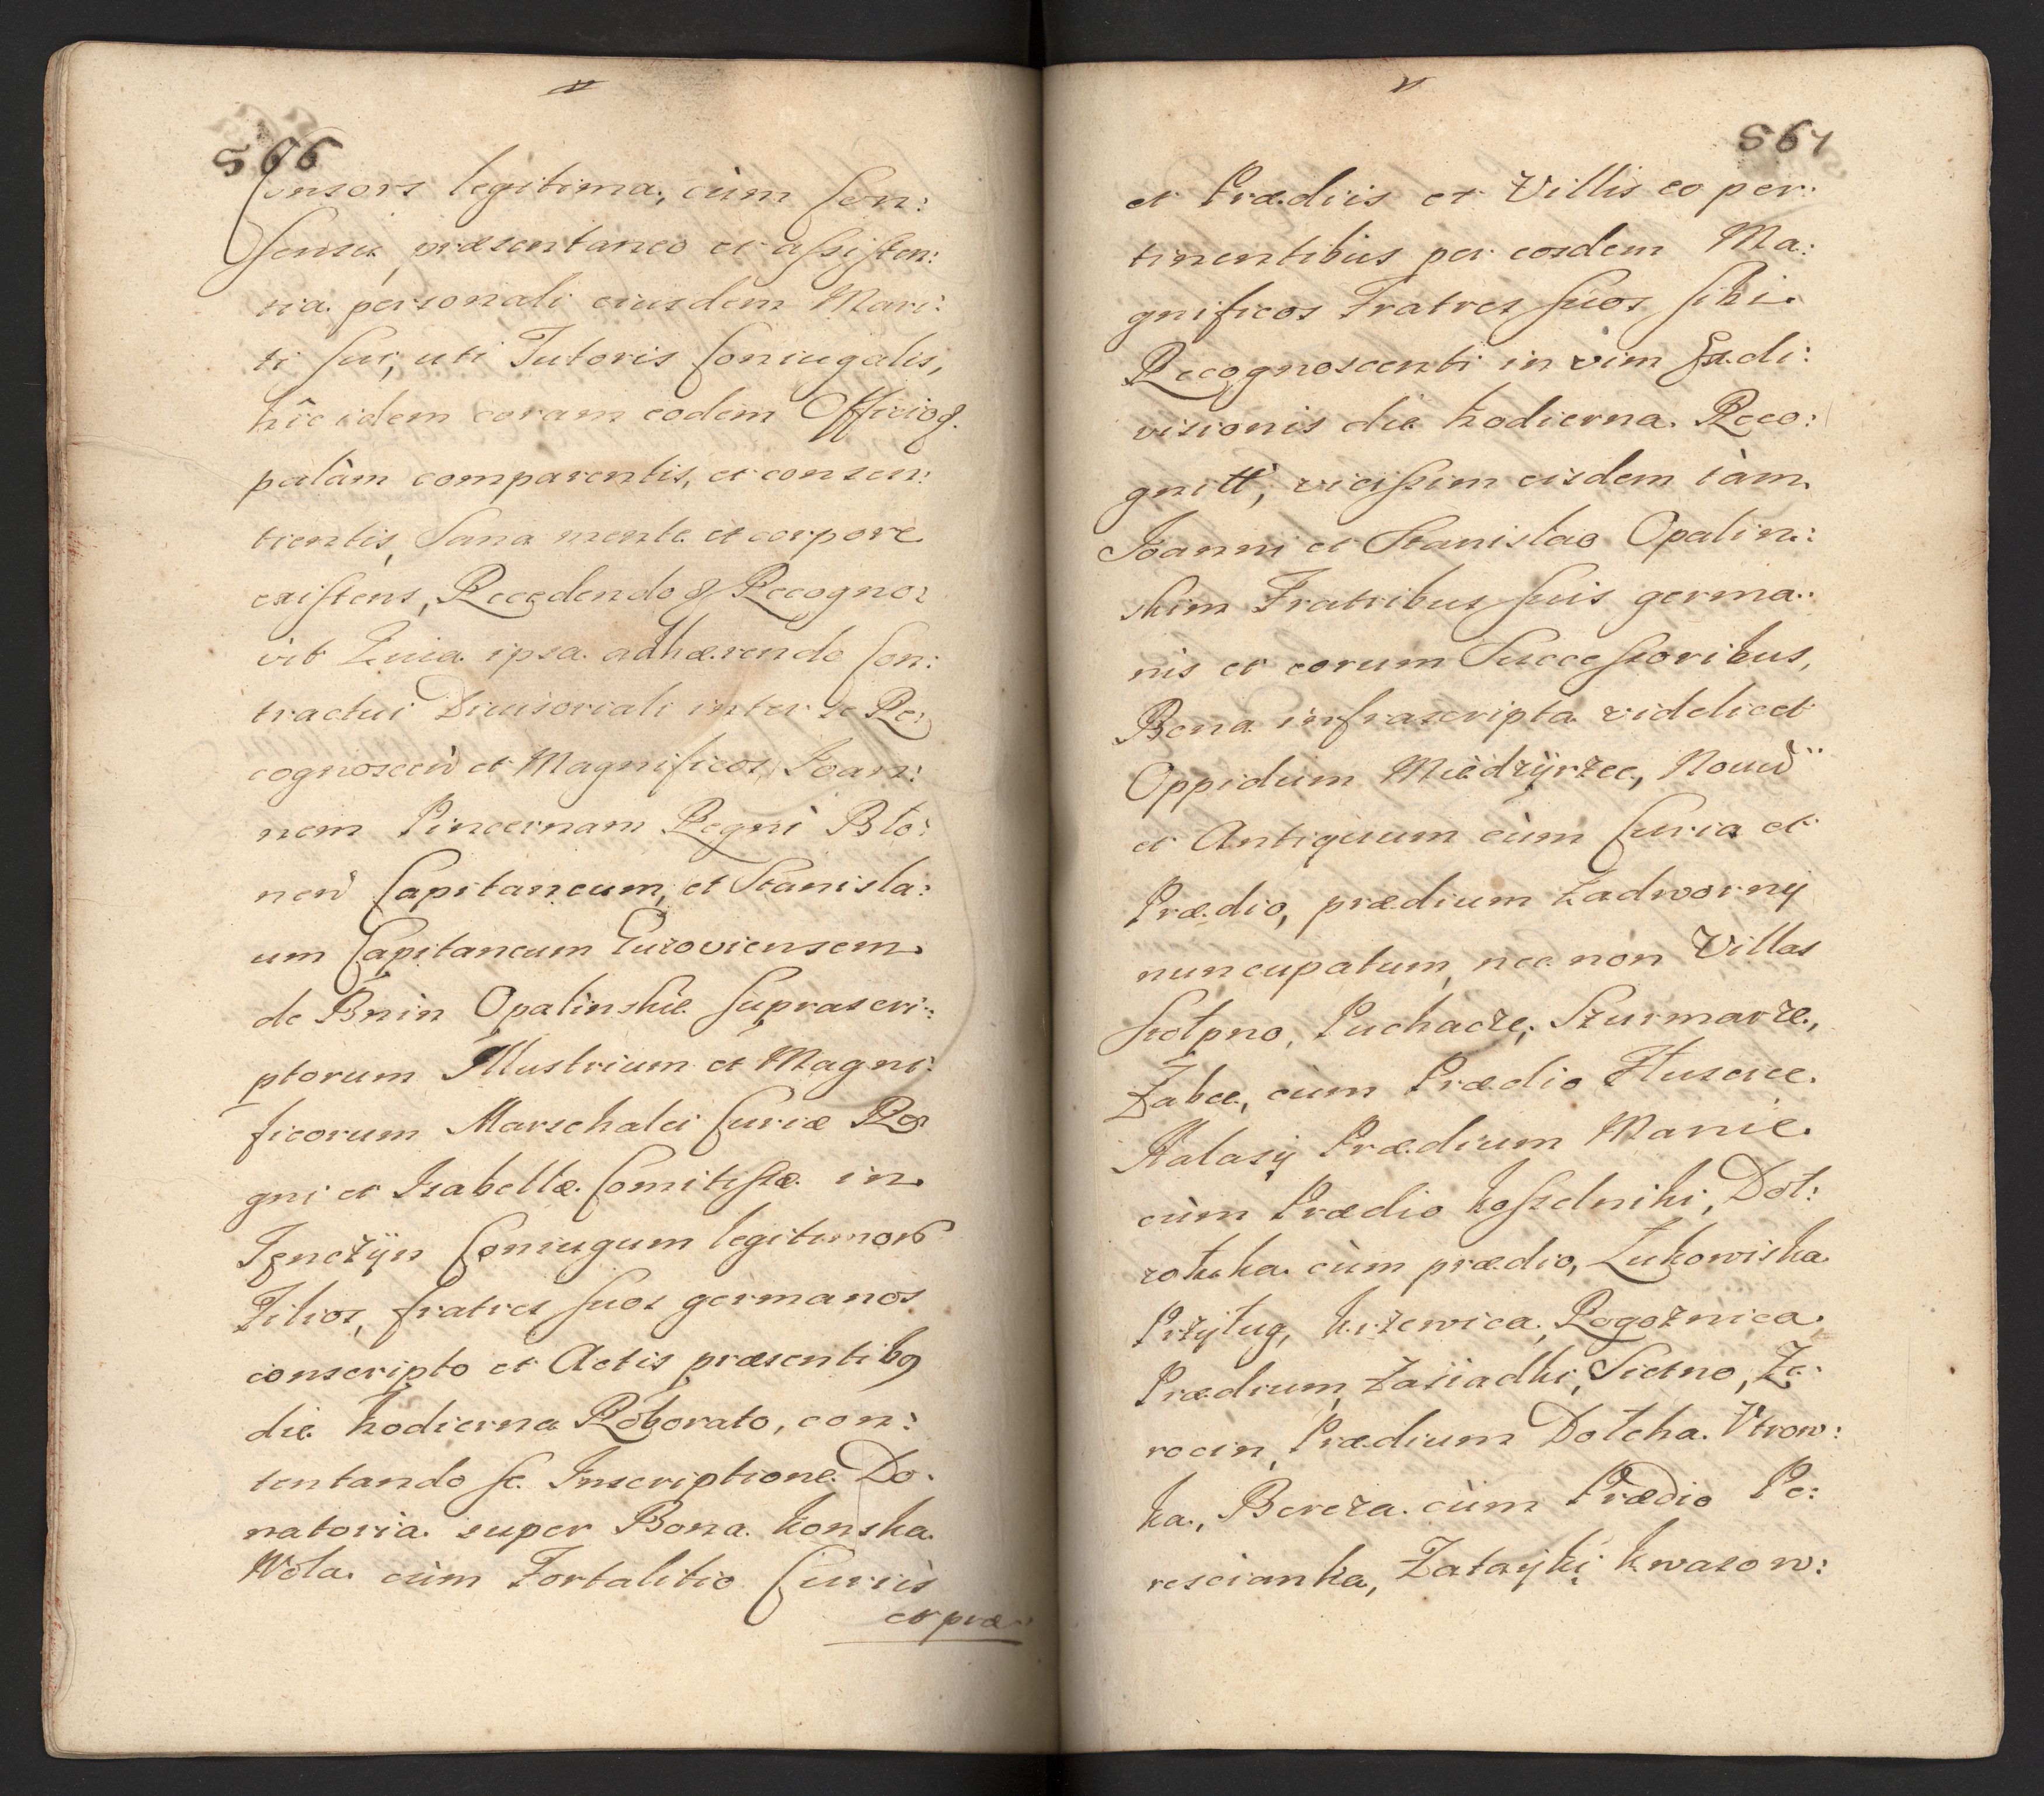 566
Consors legitima, cùm Con:
sensu præsentaneo et assisten:
tia personali eiusdem Mari:
ti sui, uti Tutoris Coniugalis,
hîc idem coram eodem Officio &.
palàm comparentis, et consen:
tientis, Sana mente et corpore
existens, Recedendo & Recogno:
vit Quia ipsa adhærendo Con:
tractui Diuisoriali inter se Re:
cognoscen et Magnificos Joan:
nem Pincernam Regni Blo:
nen Capitaneum, et Stanisla:
um Capitaneum Guzoviensem
de Bnin Opalinskie suprascri:
ptorum Illustrium et Magni:
ficorum Marschalci Curiæ Re:
gni et Isabellæ Comitissæ in
Tęnczÿn Coniugum legitimor
Filios, fratres suos germanos
conscripto et Actis præsentibg
die hodierna Roborato, con:
tentando se Inscriptione Do:
natoria super Bona Konska
Wola cùm Fortalitio Curiis
et præ:
567
et Prædiis et Villis eo per:
tinentibus per eosdem Ma:
gnificos Fratres suos sibi
Recognoscenti in vim Exdi:
visionis die hodierna Reco:
gnitt, vicissim eisdem iàm
Joanni et Stanislao Opalin:
skim Fratribus suis germa:
nis et eorum Successoribus,
Bona infrascripta videlicet
Oppidum Miedzÿrzec, Nouu
et Antiquum cùm Curia et
Prædio, prædium Zadwornÿ
nuncupatum, nec non Villas
Stołpno, Puchacze, Szurmarze,
Żabce, cùm Prædio Huscice
Halasÿ Prædium Manie
cùm Prædio Koszelniki, Dot:
rohuka cùm prædio, Żukowiska
Przÿług, Krzewica, Rogoznica
Prædium, Zasiadki, Sietno, Że:
rocin, Prædium Dołcha. Vtrow:
ka, Bereza cùm Prædio Pe:
rescianka, Zatayki Kwasow: